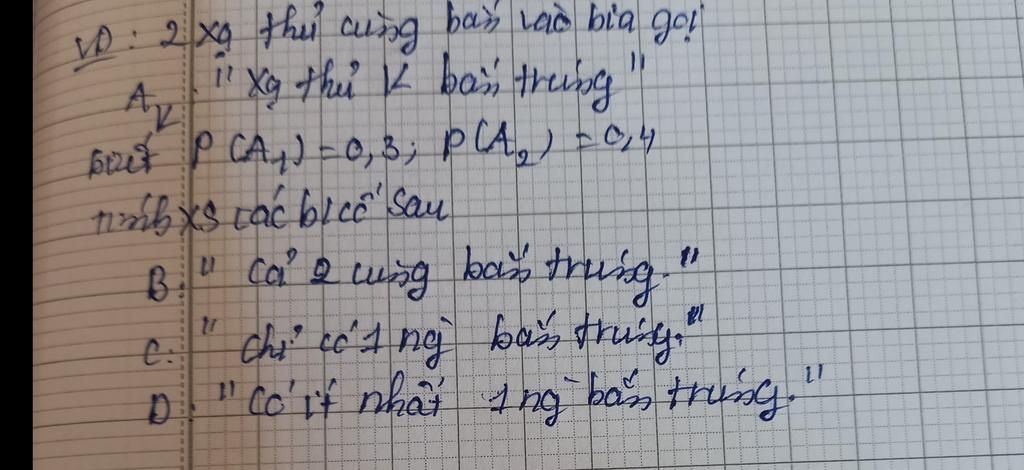 VD: 2 xạ thủ cùng bắn vào bia gọi
A_K: "xạ thủ K bắn trúng"
biết P(A_1) = 0,3; P(A_2) = 0,4
tính XS các b/cố sau
B: "Cả 2 cùng bắn trúng."
C: "chỉ có 1 ng` bắn trúng."
D: "Có ít nhất 1 ng` bắn trúng."